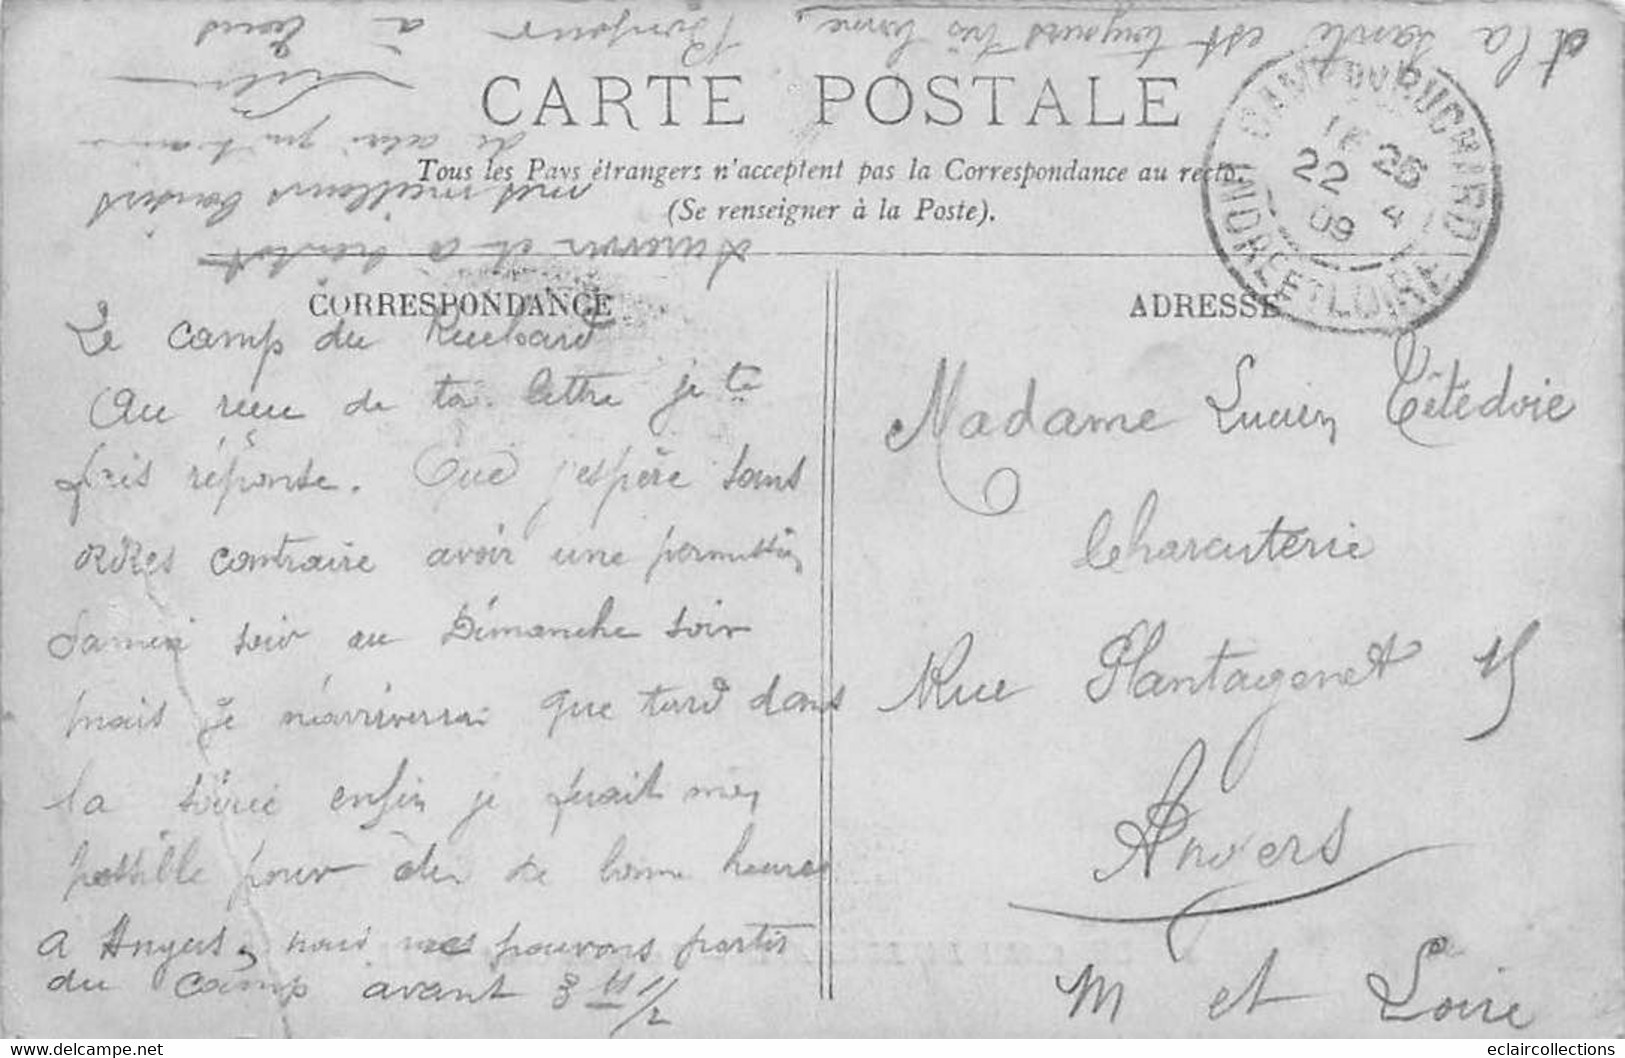 CARTE POSTALE
Tous les Pays étrangers n'acceptent pas la Correspondance au recto.
(Se renseigner à la Poste).
CORRESPONDANCE
Le camp du Ruchard
Au reçu de ta lettre je te
fais réponse. Que j'espère sans
ordres contraire avoir une permission
Samedi soir au Dimanche soir
mais je n'arriverai que tard dans
la soirée enfin je ferait mon
possible pour être de bonne heures
a Angers, nous ne pouvons partir
du camp avant 3 hs 1/2
et la santé est toujours très bonne. Bonjour à tous
Lucien
de celui qui
mes meilleurs baisers
au revoir et a bientôt
ADRESSE
Madame Lucien Têtedoie
Charcuterie
Rue Plantagenet 15
Angers
M et Loire
CAMP DU RUCHARD
INDRE ET LOIRE
22 4
09
eclaircollections.com
eclaircollections